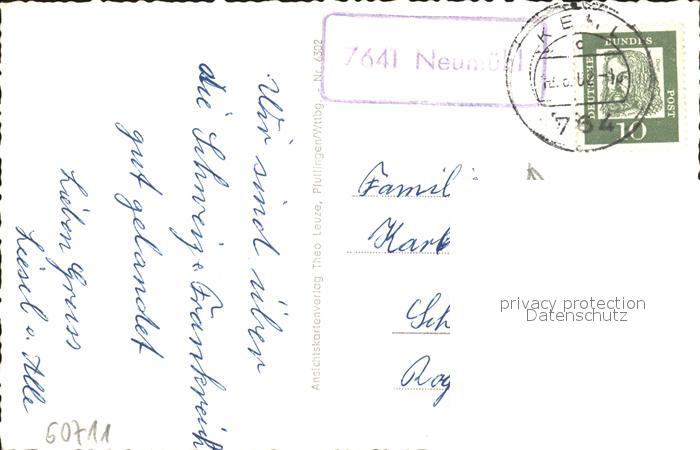 Wir sind über
die Schweiz + Frankreich
gut gelandet
Lieben Gruss
Liesel u. Alle
60711
Ansichtskartenverlag Theo Leuze, Pfullingen/Wttbg. - Nr. 6302
7641 Neumühl
KEHL
764
DEUTSCHE
BUNDES
POST
10
Famil
Karl
Sch
Rog
privacy protection
Datenschutz